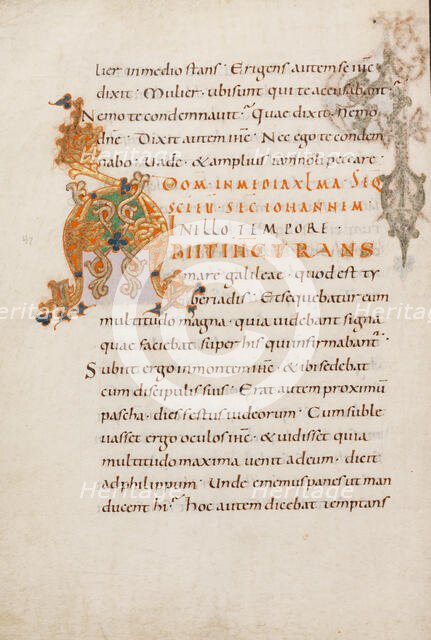 lier in medio stans · Erigens autem se ihc̄
dixit · Mulier · ubi sunt qui te accusabant
Nemo te condemnavit · Quae dixit · Nemo
dn̄e · Dixit autem ihc̄ · Nec ego te condem
nabo · Vade · & amplius iam noli peccare ·
DOM · IN MEDIA XLMA · SEQ
SCI EV · SEC IOHANNEM
IN ILLO TEMPORE ·
ABIIT IHC TRANS
mare galileae · quod est ty
beriadis · Et sequebatur eum
multitudo magna · quia videbant signa
quae faciebat super his qui infirmabant᷑
Subiit ergo in montem ihc̄ · & ibi sedebat
cum discipulis suis · Erat autem proximū
pascha · dies festus iudeorum · Cum suble
vasset ergo oculos ihc̄ · & vidisset quia
multitudo maxima venit ad eum · dicit
ad philippum · Unde ememus panes ut man
ducent hi · Hoc autem dicebat temptans
Heritage
Images